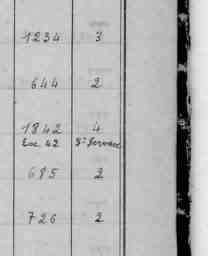 1234 3
644 2
1842 4
Esc. 42 St Servace
685 2
726 2